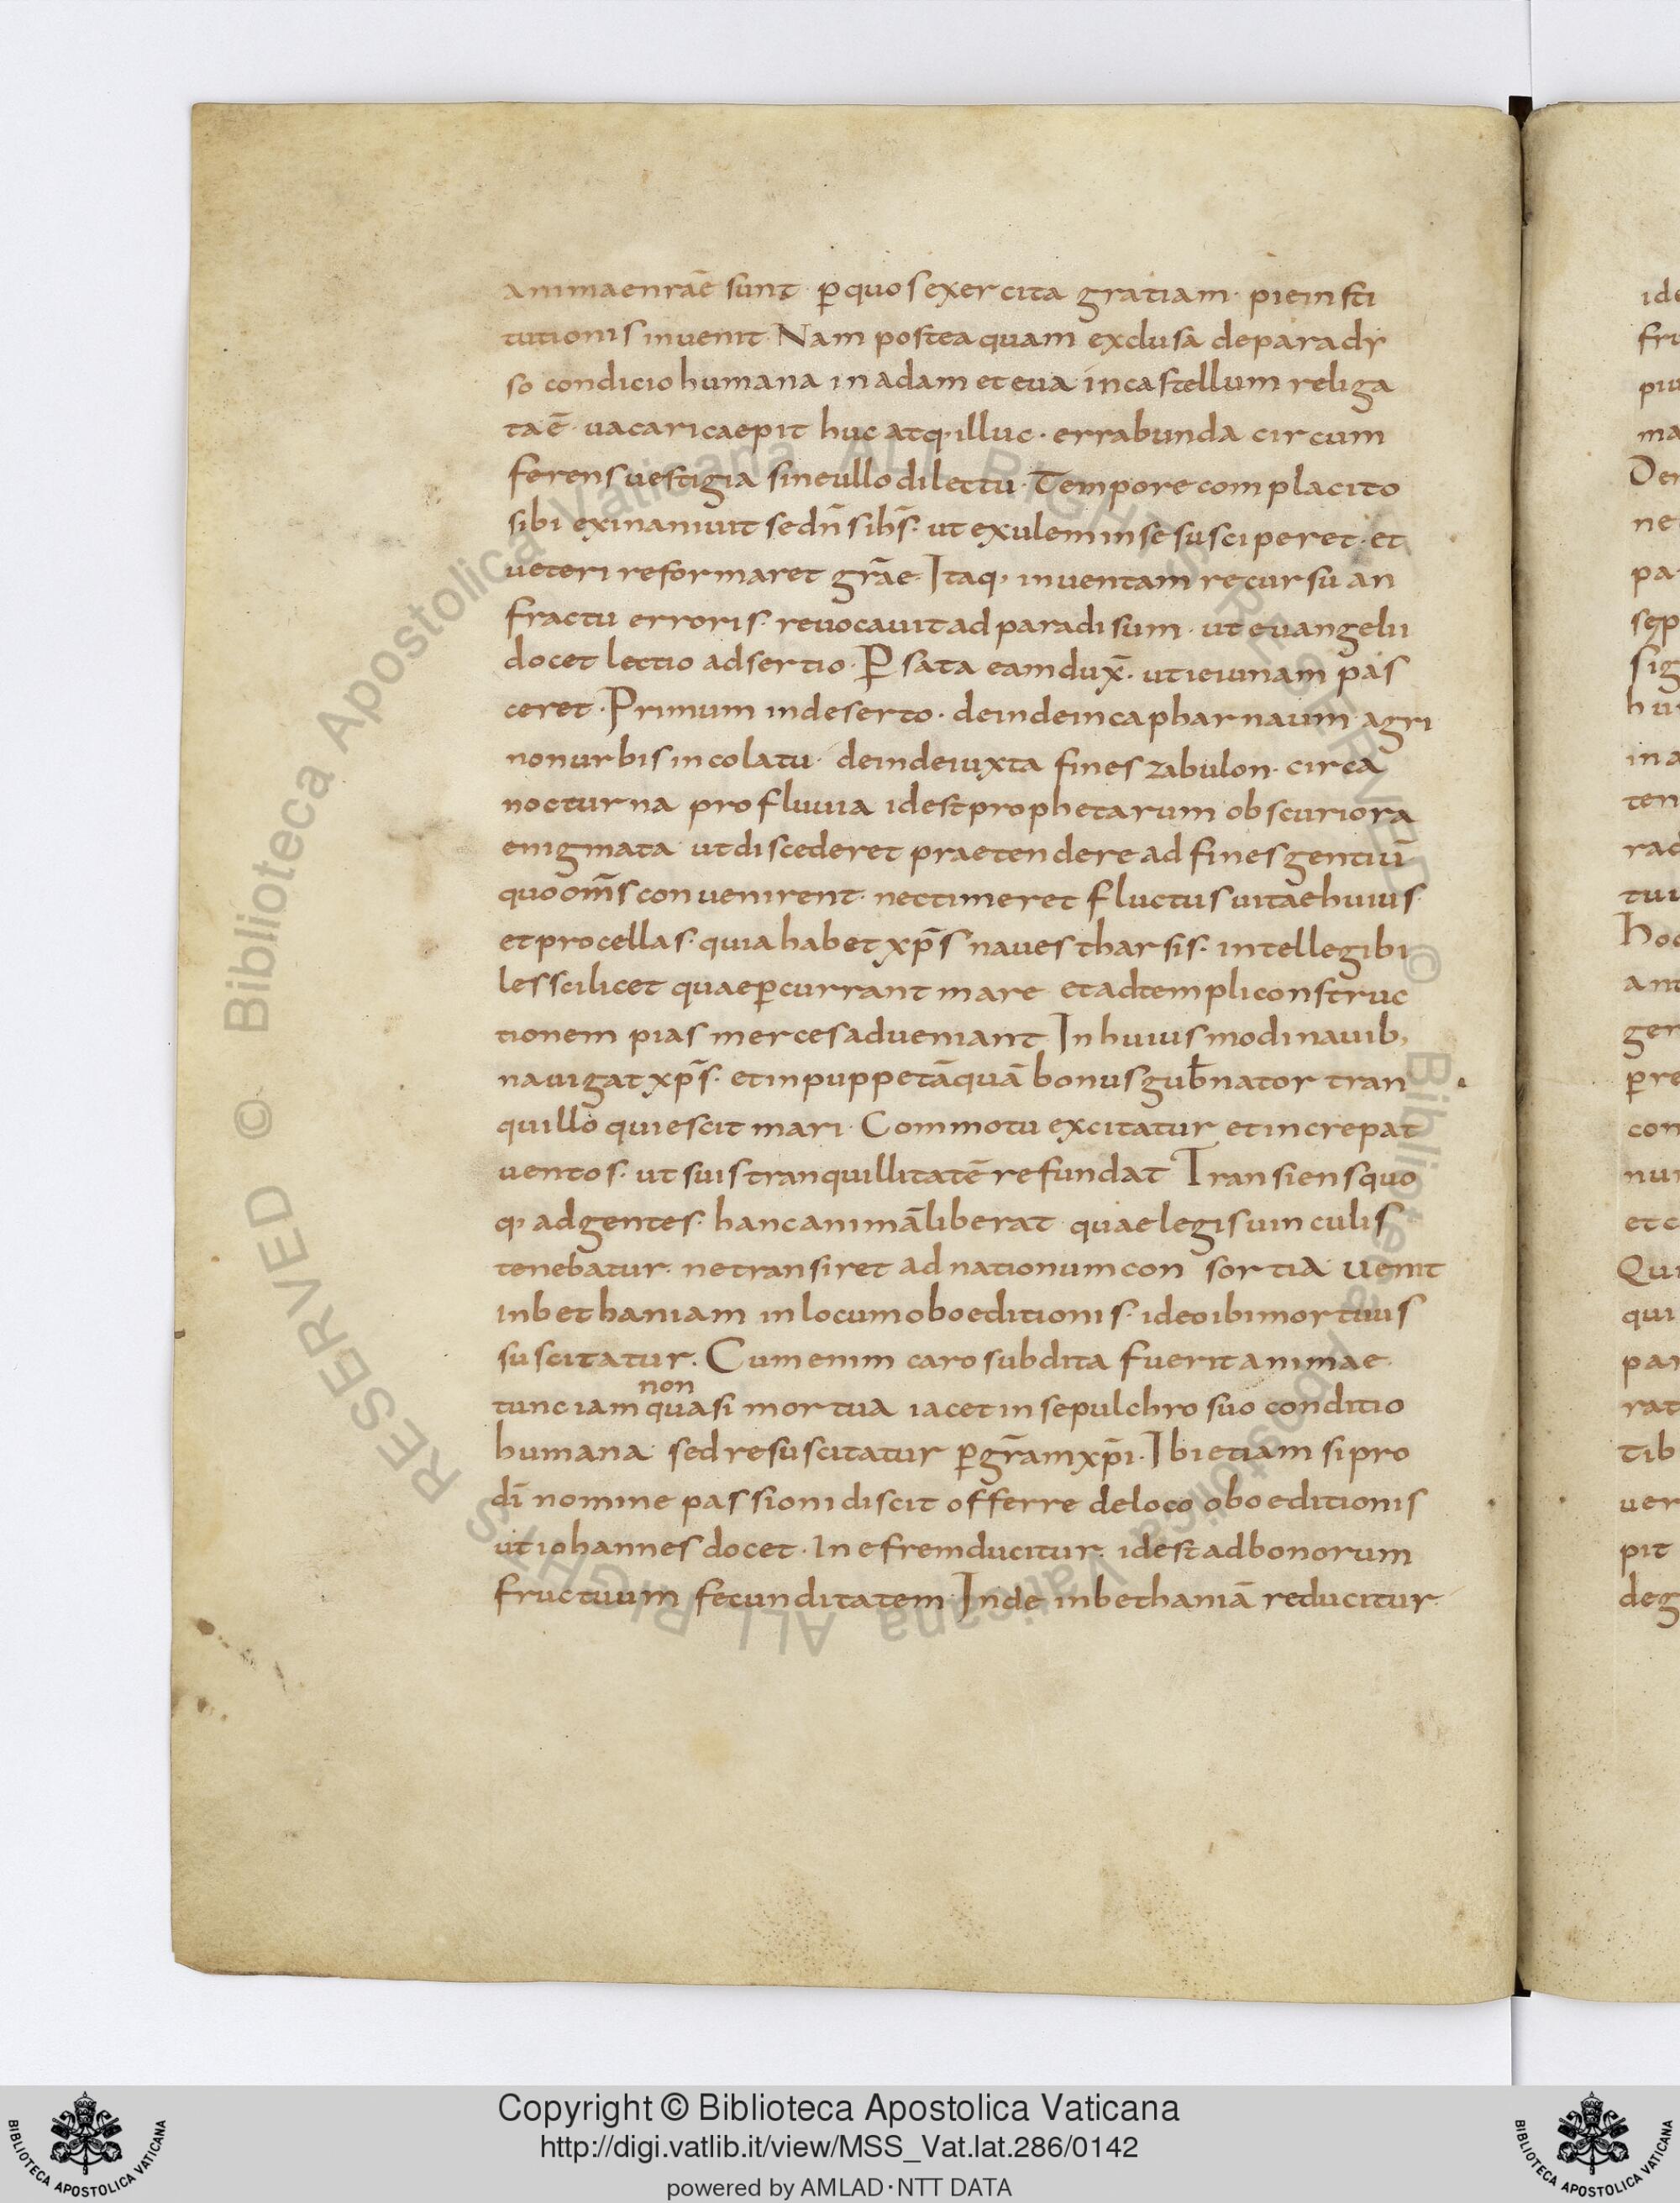 animae nrāe sunt· ꝑ quos exercita gratiam· pie insti
tutionis invenit· Nam posteaquam exclusa de parady
so condicio humana in adam et eva in castellum religa
ta ē· vacari caepit huc atq; illuc· errabunda circum
ferens vestigia sine ullo dilectu· Tempore complacito
sibi exinanivit se dn̄s ih̄s· ut exulem in se susciperet· et
veteri reformaret grāe· Itaq; inventam recursu an
fractu erroris· revocavit ad paradisum· ut evangelii
docet lectio adsertio· ꝑ sata eam dux̄· ut ieiunam pas
ceret· Primum in deserto· deinde in capharnaum agri
non urbis incolatu· deinde iuxta fines zabulon· circa
nocturna profluvia id est prophetarum obscuriora
enigmata· ut disceret praetendere ad fines gentiū
quo om̄s convenirent· nec timeret fluctus vitae huius·
et procellas· quia habet xp̄s naves tharsis· intellegibi
les scilicet quae ꝑcurrant mare et ad templi construc
tionem pias merces adveniant In huiusmodi navib;
navigat xp̄s· et in puppe tāquā bonus gub̄nator tran
quillo quiescit mari· Commotu excitatur et increpat
ventos· ut suis tranquillitatē refundat Transiens quo
q; ad gentes· hanc animā liberat quae legis vinculis
tenebatur· ne transiret ad nationum con sortia· venit
in bethaniam in locum oboeditionis· ideo ibi mortuus
suscitatur. Cum enim caro subdita fuerit animae·
non
tunc iam quasi mortua iacet in sepulchro suo conditio
humana· sed resuscitatur ꝑ gr̄am xp̄i· Ibi etiam si pro
dī nomine passioni discit offerre de loco oboeditionis
ut iohannes docet· In efrem ducitur· id est ad bonorum
fructuum fecunditatem· Inde in bethaniā reducitur·
Copyright © Biblioteca Apostolica Vaticana
http://digi.vatlib.it/view/MSS_Vat.lat.286/0142
powered by AMLAD·NTT DATA
BIBLIOTECA APOSTOLICA VATICANA
BIBLIOTECA APOSTOLICA VATICANA
© Biblioteca Apostolica Vaticana ALL RIGHTS RESERVED
© Biblioteca Apostolica Vaticana ALL RIGHTS RESERVED